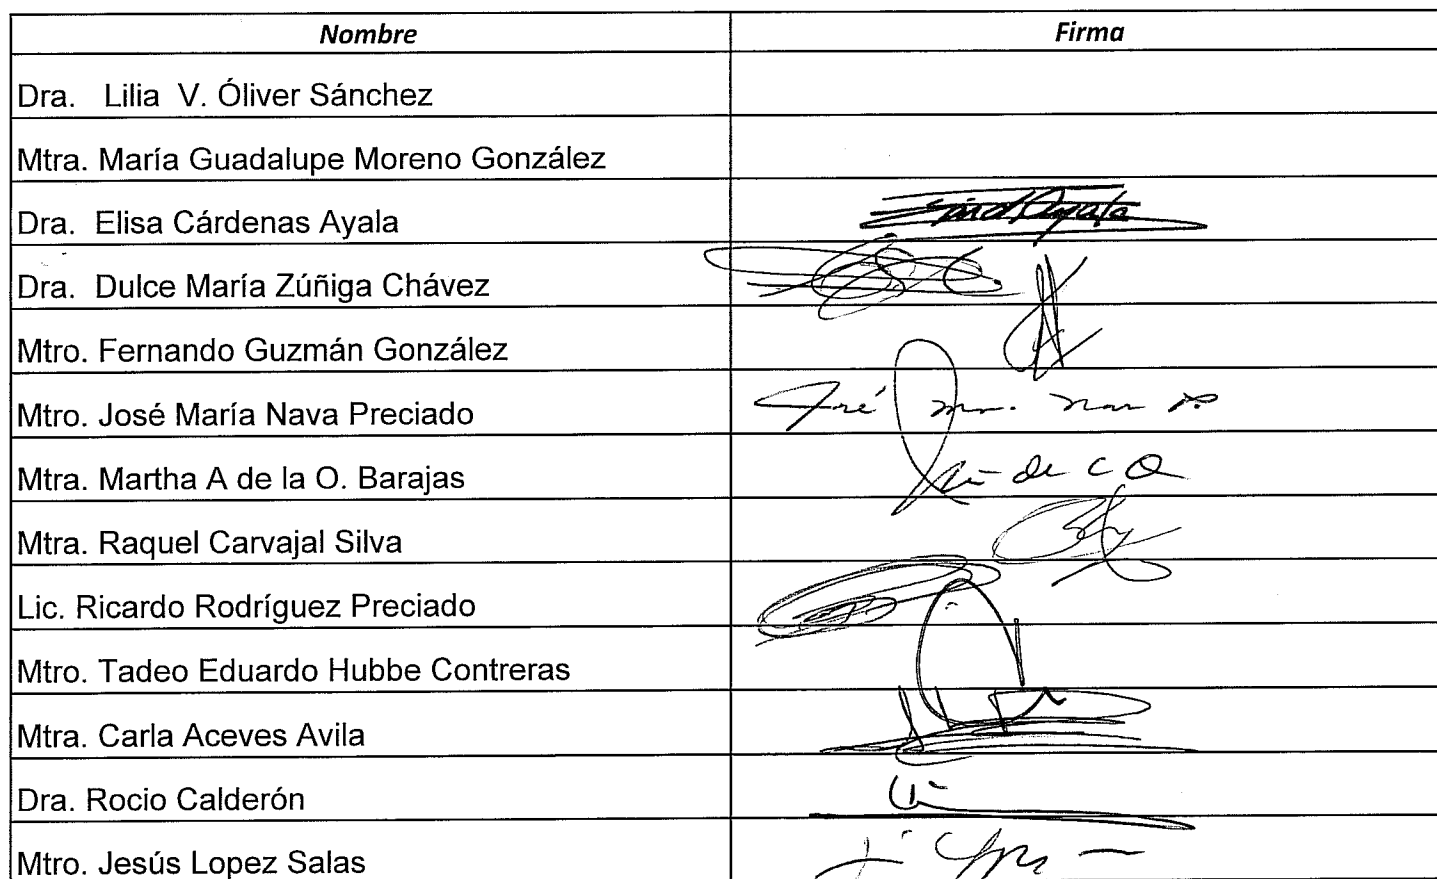 Nombre Firma
Dra. Lilia V. Óliver Sánchez
Mtra. María Guadalupe Moreno González
Dra. Elisa Cárdenas Ayala
Dra. Dulce María Zúñiga Chávez
Mtro. Fernando Guzmán González
Mtro. José María Nava Preciado José
Mtra. Martha A de la O. Barajas de
Mtra. Raquel Carvajal Silva
Lic. Ricardo Rodríguez Preciado
Mtro. Tadeo Eduardo Hubbe Contreras
Mtra. Carla Aceves Avila
Dra. Rocio Calderón
Mtro. Jesús Lopez Salas